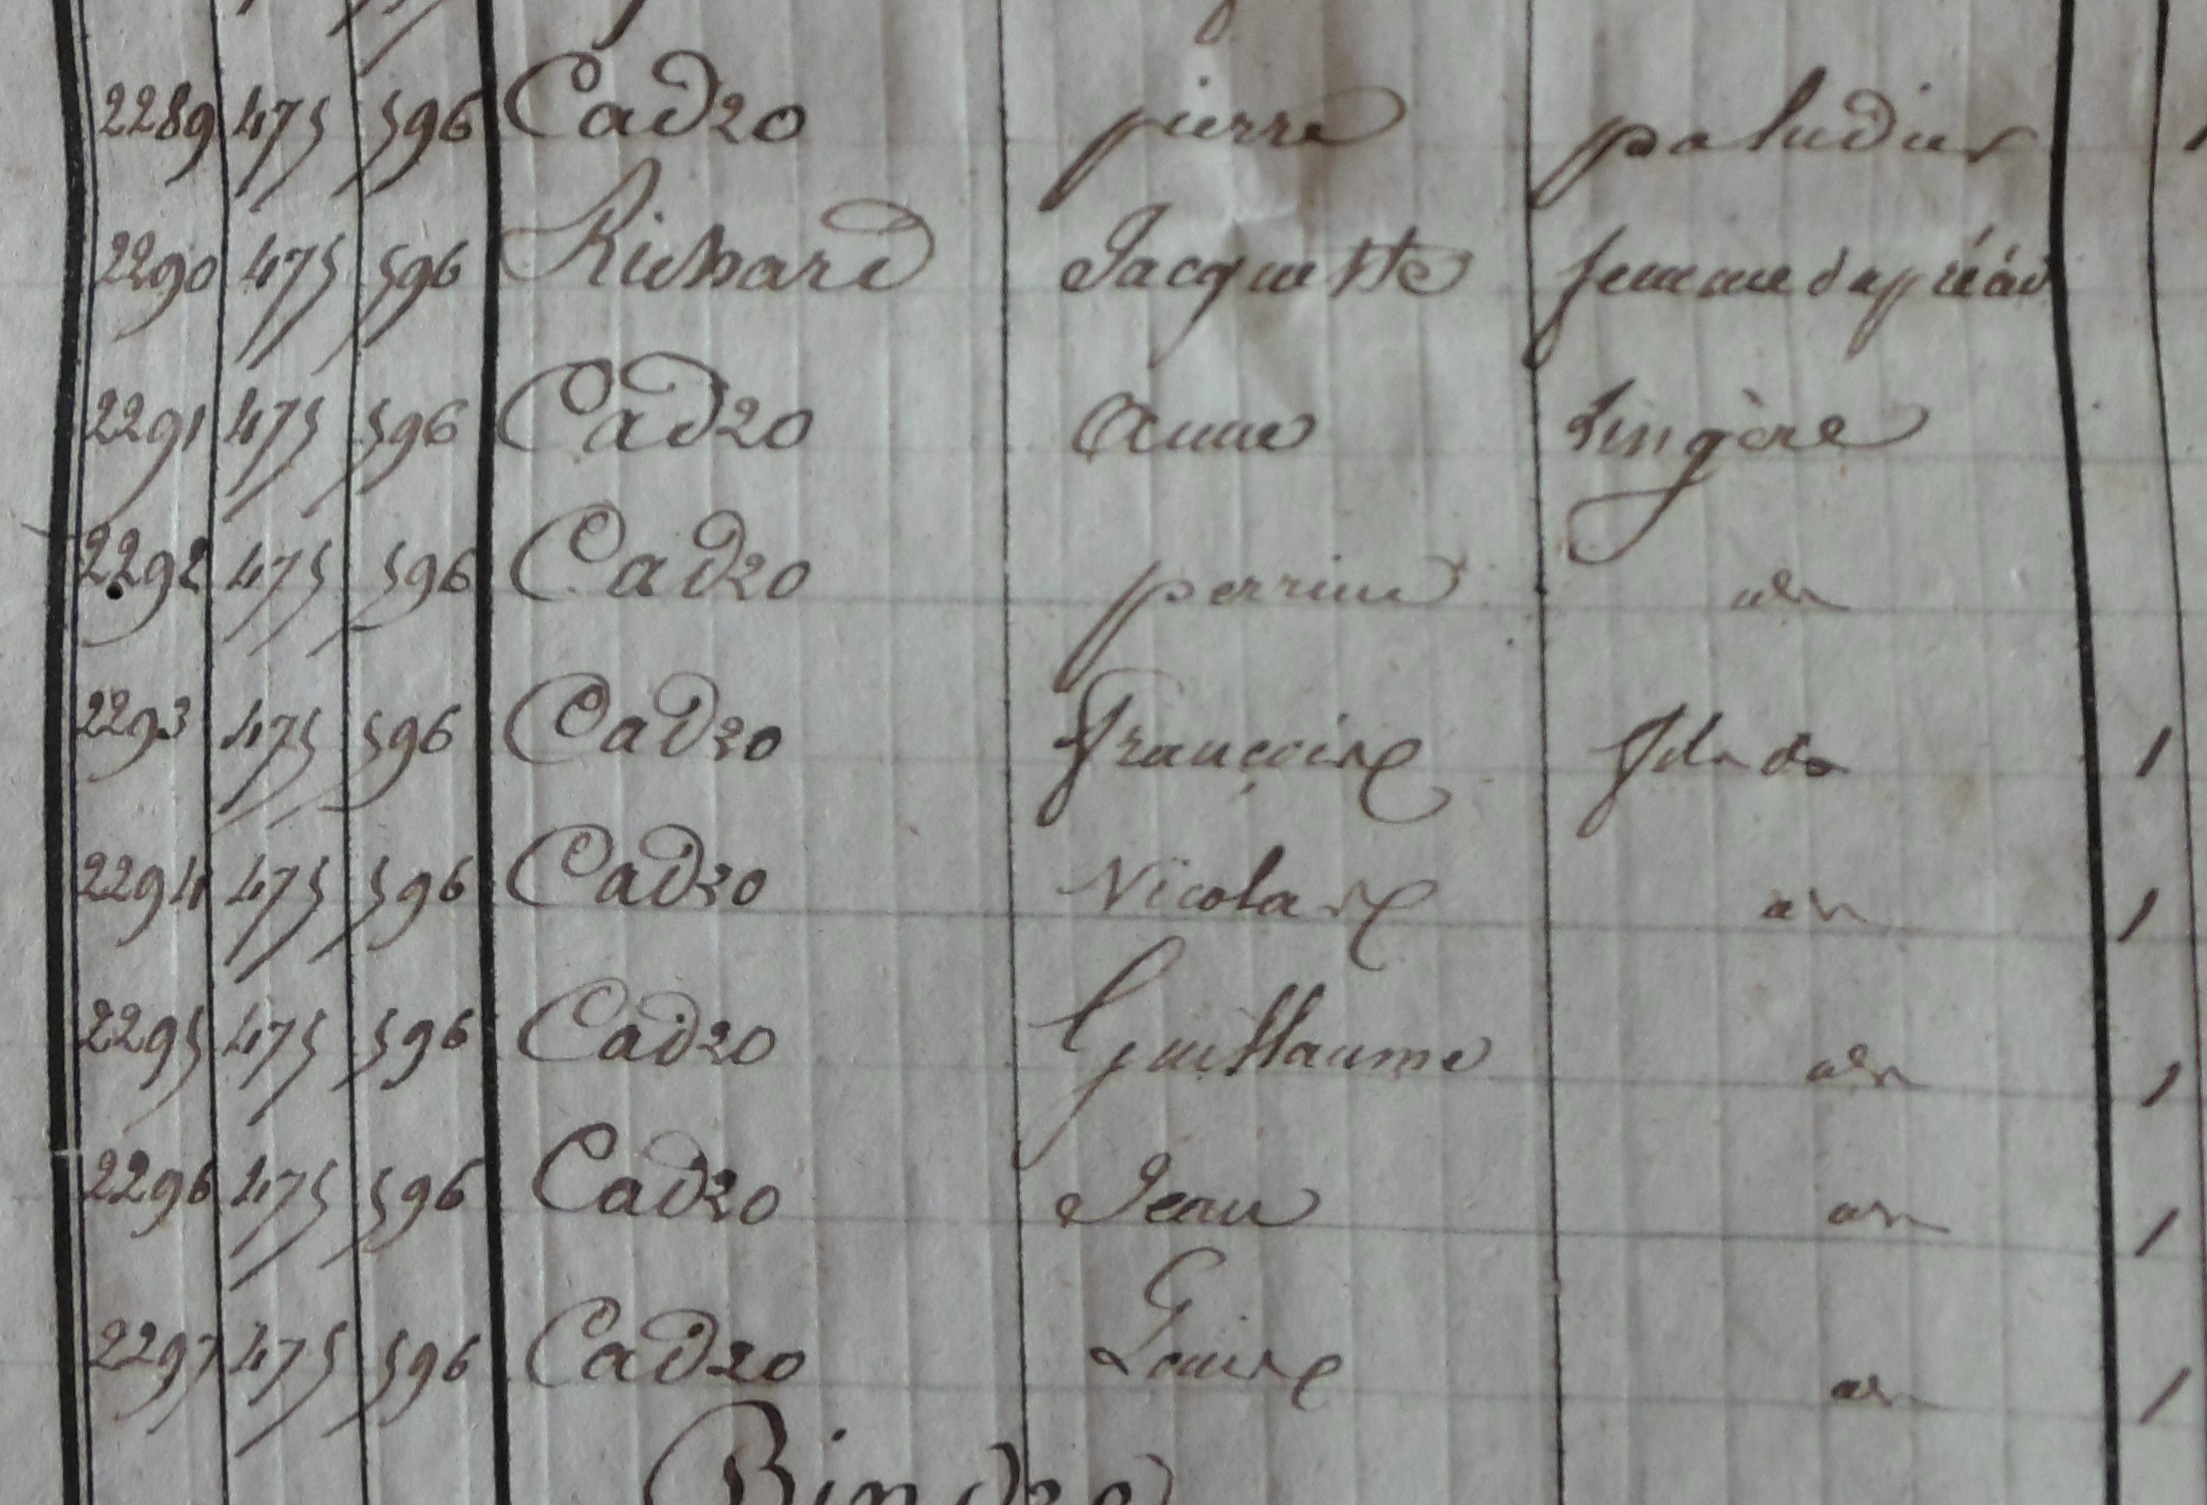 2289 475 596 Cadro pierre paludier
2290 475 596 Richard Jacquette femme du préad
2291 475 596 Cadro Anne Lingère
2292 475 596 Cadro perrine idn
2293 475 596 Cadro Françoise 1
2294 475 596 Cadro Nicolase 1
2295 475 596 Cadro Guillaume idn 1
2296 475 596 Cadro Jean 1
2297 475 596 Cadro Louise 1